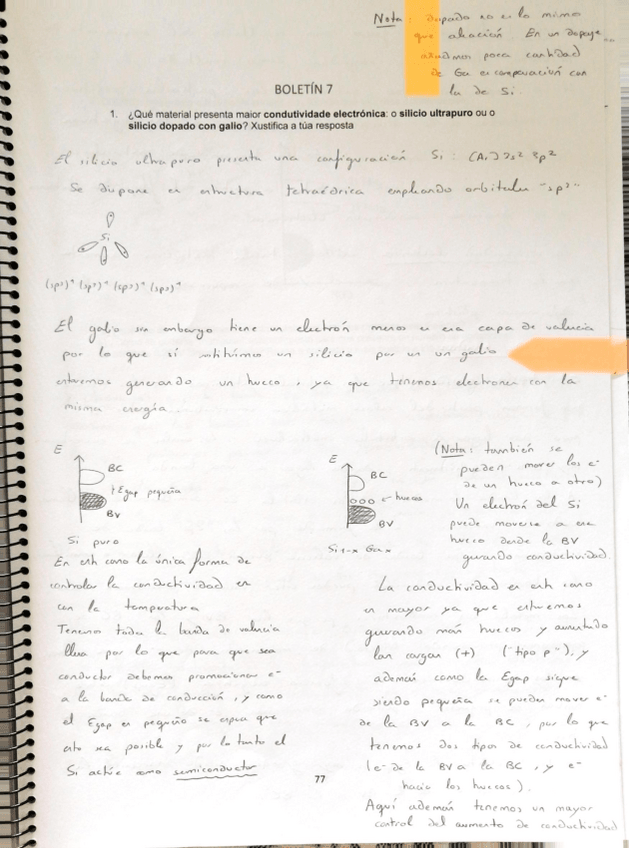 Nota: dopado no es lo mismo
que aleación. En un dopaje
añadimos poca cantidad
de Ga en comparación con
la de Si.
BOLETÍN 7
1. ¿Qué material presenta maior condutividade electrónica: o silicio ultrapuro ou o
silicio dopado con galio? Xustifica a túa resposta
El silicio ultrapuro presenta una configuración Si: (Ar) 3s² 3p²
Se dispone en estructura tetraédrica empleando orbitales "sp³"
Si
(sp³)¹ (sp³)¹ (sp³)¹ (sp³)¹
El galio sin embargo tiene un electrón menos en esa capa de valencia
por lo que si sustituimos un silicio por un un galio
estaremos generando un hueco, ya que tenemos electrones con la
misma energía
E
BC
Egap pequeña
BV
Si puro
E
BC
huecos
BV
Si1-x Gax
(Nota: también se
pueden mover los e-
de un hueco a otro)
Un electrón del Si
puede moverse a ese
hueco desde la BV
generando conductividad.
En este caso la única forma de
controlar la conductividad es
con la temperatura
Tenemos toda la banda de valencia
llena por lo que para que sea
conductor debemos promocionar e-
a la banda de conducción, y como
el Egap es pequeño se espera que
esto sea posible y por lo tanto el
Si actúe como semiconductor
La conductividad en este caso
es mayor ya que estaremos
generando más huecos y aumentado
las cargas (+) ("tipo p"), y
además como la Egap sigue
siendo pequeña se pueden mover e-
de la BV a la BC, por lo que
tenemos dos tipos de conductividad
(e- de la BV a la BC, y e-
hacia los huecos).
Aquí además tenemos un mayor
control del aumento de conductividad
77